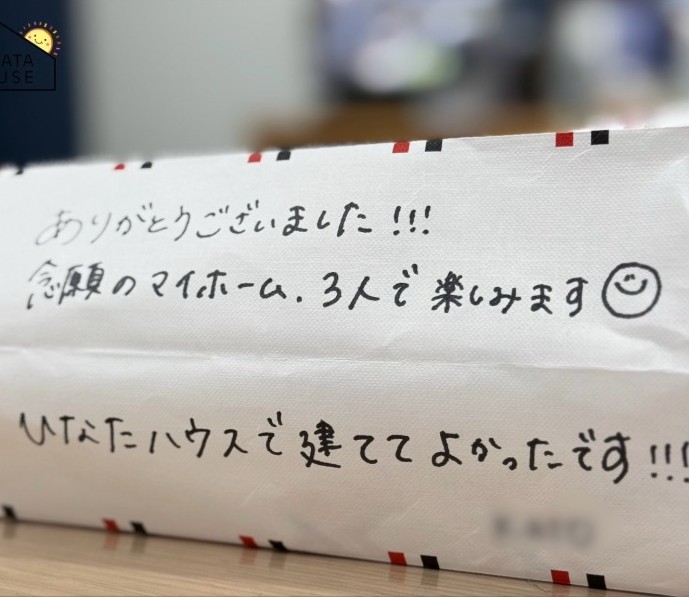 ATA
USE
ありがとうございました!!!
念願のマイホーム、3人で楽しみます
ひなたハウスで建ててよかったです!!!